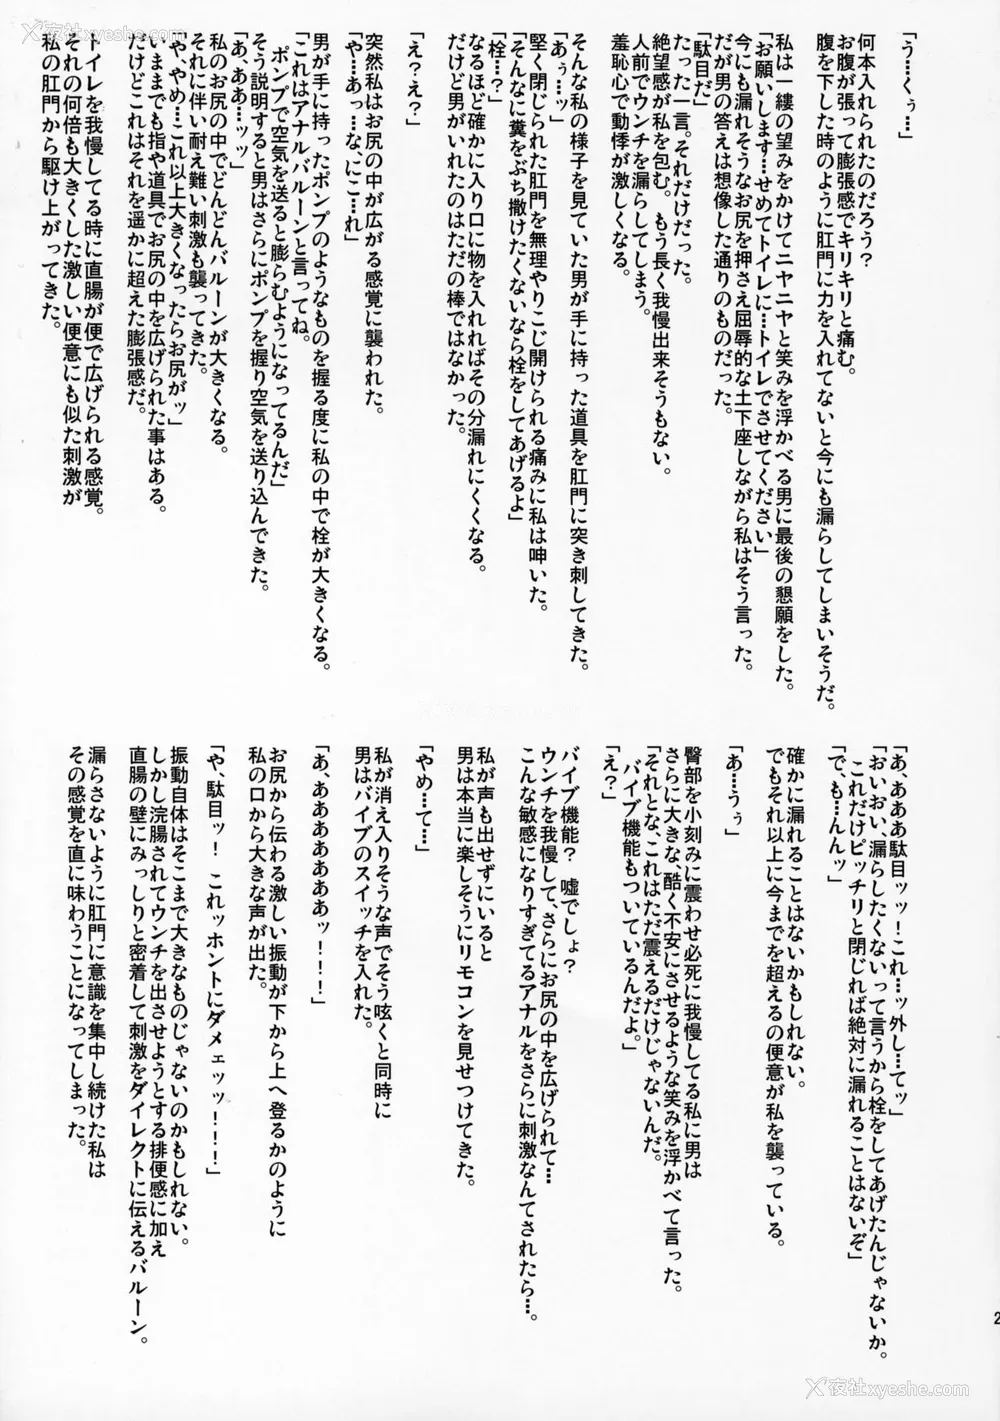 「う…くぅ…」
何本入れられたのだろう？
お腹が張って膨張感でキリキリと痛む。
腹を下した時のように肛門に力を入れてないと今にも漏らしてしまいそうだ。
私は一縷の望みをかけてニヤニヤと笑みを浮かべる男に最後の懇願をした。
「お願いします…せめてトイレに…トイレでさせてください」
今にも漏れそうなお尻を押さえ屈辱的な土下座しながら私はそう言った。
だが男の答えは想像した通りのものだった。
「駄目だ」
たった一言。それだけだった。
絶望感が私を包む。もう長く我慢出来そうもない。
人前でウンチを漏らしてしまう。
羞恥心で動悸が激しくなる。
そんな私の様子を見ていた男が手に持った道具を肛門に突き刺してきた。
「あぅ…ッ」
堅く閉じられた肛門を無理やりこじ開けられる痛みに私は呻いた。
「そんなに糞をぶち撒けたくないなら栓をしてあげるよ」
「栓…？」
なるほど確かに入り口に物を入れればその分漏れにくくなる。
だけど男がいれたのはただの棒ではなかった。
「え？え？」
突然私はお尻の中が広がる感覚に襲われた。
「や…あっ…な、にこ…れ」
男が手に持ったポンプのようなものを握る度に私の中で栓が大きくなる。
「これはアナルバルーンと言ってね。
ポンプで空気を送ると膨らむようになってるんだ」
そう説明すると男はさらにポンプを握り空気を送り込んできた。
「あ、ああ…ッッ」
私のお尻の中でどんどんバルーンが大きくなる。
それに伴い耐え難い刺激も襲ってきた。
「や、やめ…これ以上大きくなったらお尻がッ」
いままでも指や道具でお尻の中を広げられた事はある。
だけどこれはそれを遥かに超えた膨張感だ。
トイレを我慢してる時に直腸が便で広げられる感覚。
それの何倍も大きくした激しい便意にも似た刺激が
私の肛門から駆け上がってきた。
「あ、あああ駄目ッッ！これ…ッ外し…てッ」
「おいおい、漏らしたくないって言うから栓をしてあげたんじゃないか。
これだけピッチリと閉じれば絶対に漏れることはないぞ」
「で、も…んんッ」
確かに漏れることはないかもしれない。
でもそれ以上に今までを超えるの便意が私を襲っている。
「あ…うぅ」
臀部を小刻みに震わせ必死に我慢してる私に男は
さらに大きな、酷く不安にさせるような笑みを浮かべて言った。
「それとな、これはただ震えるだけじゃないんだ。
バイブ機能もついているんだよ。」
「え？」
バイブ機能？　嘘でしょ？
ウンチを我慢して、さらにお尻の中を広げられて…
こんな敏感になりすぎてるアナルをさらに刺激なんてされたら…。
私が声も出せずにいると
男は本当に楽しそうにリモコンを見せつけてきた。
「やめ…て…」
私が消え入りそうな声でそう呟くと同時に
男はバイブのスイッチを入れた。
「あ、ああああああッ！！！」
お尻から伝わる激しい振動が下から上へ登るかのように
私の口から大きな声が出た。
「や、駄目ッ！　これッホントにダメェッッ！！！」
振動自体はそこまで大きなものじゃないのかもしれない。
しかし浣腸されてウンチを出させようとする排便感に加え
直腸の壁にみっしりと密着して刺激をダイレクトに伝えるバルーン。
漏らさないように肛門に意識を集中し続けた私は
その感覚を直に味わうことになってしまった。
2
夜社xyeshe.com
夜社xyeshe.com